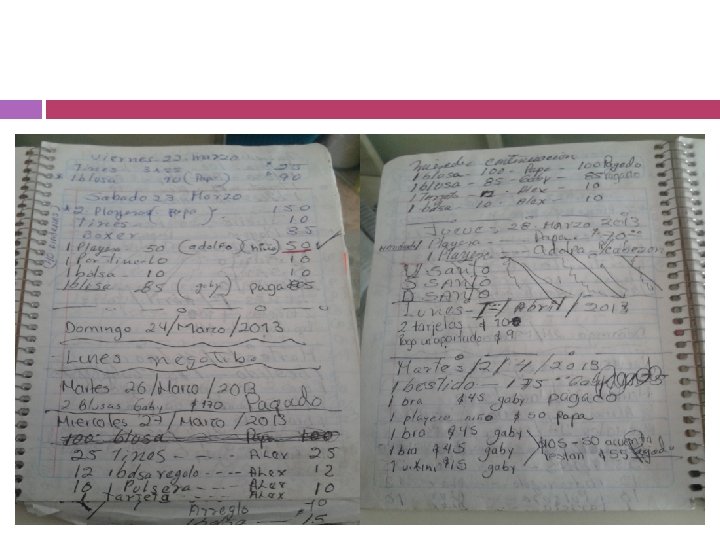 Viernes 22. Marzo
Tines 3x25 $ 25
* 1 blosa 90 (Papa) $ 90
Sabado 23 Marzo
* 2 Playeras (Papa) 150
Tines 10
Boxer 35
1 Playera 50 (adolfo) (niño) 50
1 Por dinerito 10
1 bolsa 10 10
1 blusa 85 (gby) pagado 85
Domingo 24/Marzo/2013
Lunes negatibo
Martes 26/Marzo/2013
2 Blusas Gaby $170 Pagado
Miercoles 27/Marzo/2013
100 blusa Papa 100
25 Tines - - - - Alex 25
12 1 bolsa regalo - - - - Alex 12
10 1 Pulsera - - - - Alex 10
1 tarjeta - - - - Alex
Arreglo 10
15
continuacion
1 blosa - 100 - Papa - 100 Pagado
1 blosa - 85 - Gaby - 85 Pagado
1 - Alex - 10
1 bolsa 10 - Alex - 10
Jueves 28. Marzo 2013
1 Playera
1 Playera - adolfo
V Santo
S Santo
D Santo
Lunes 1/Abril/2013
2 tarjetas $
Pago un apartado $
Martes/2/4/2013
1 bestido - 175 - Gaby Pagado
1 bra $45 gaby pagado
1 playera niño $50 papa
1 bra $45 gaby
1 bra $45 gaby
$15 gaby
$105 - 50
restan $55 Pagado